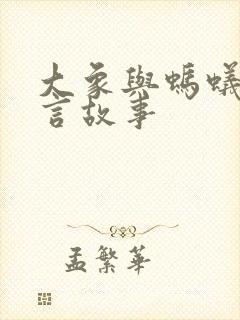 大象與螞蟻
言故事
孟繁華